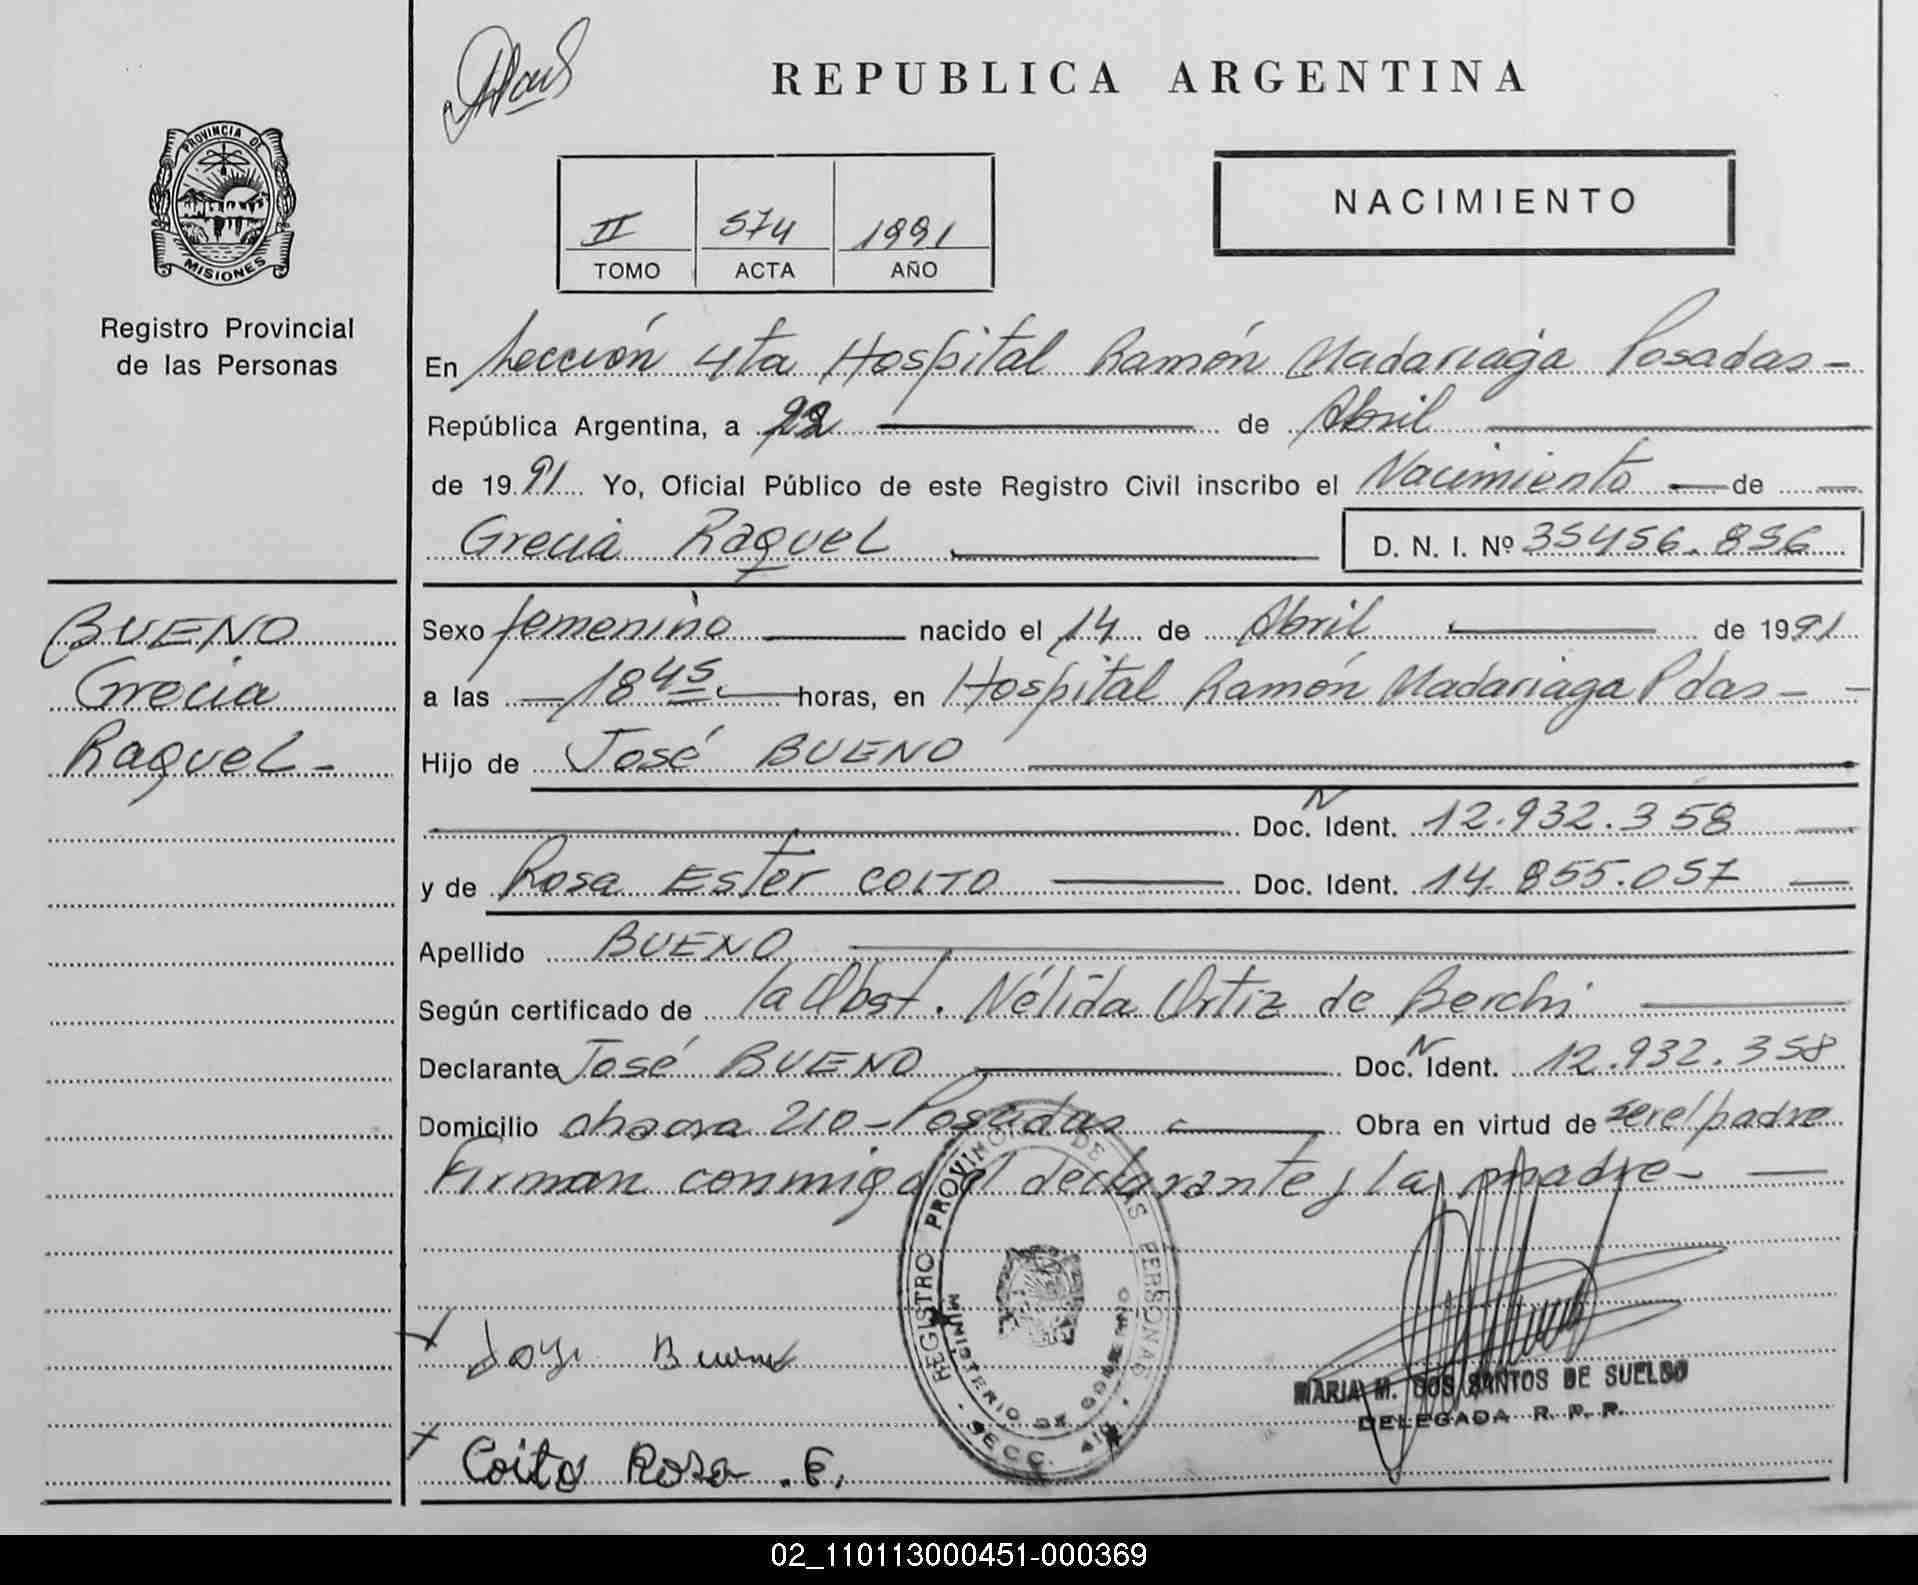 REPUBLICA ARGENTINA
PROVINCIA DE
MISIONES
Registro Provincial
de las Personas
II 574 1991
TOMO ACTA AÑO
NACIMIENTO
En Sección 4ta Hospital Ramón Madariaga Posadas -
República Argentina, a 22 de Abril
de 1991 Yo, Oficial Público de este Registro Civil inscribo el Nacimiento de
Grecia Raquel D. N. I. Nº 35456.856
BUENO
Grecia
Raquel -
Sexo femenino nacido el 14 de Abril de 1991
a las 18 45 horas, en Hospital Ramón Madariaga Pdas -
Hijo de José BUENO
Doc. N Ident. 12.932.358
y de Rosa Ester COITO Doc. Ident. 14.855.057
Apellido BUENO
Según certificado de la Obst. Nélida Ortiz de Berchi
Declarante José BUENO Doc. N Ident. 12.932.358
Domicilio chacra 210 - Posadas Obra en virtud de ser el padre
Firman conmigo el declarante y la madre -
REGISTRO PROVINCIAL DE LAS PERSONAS
MINISTERIO DE GOBIERNO
SECC. 4ta
Bueno
MARIA M. DOS SANTOS DE SUELDO
DELEGADA R. P. P.
Coito Rosa . E.
02_110113000451-000369